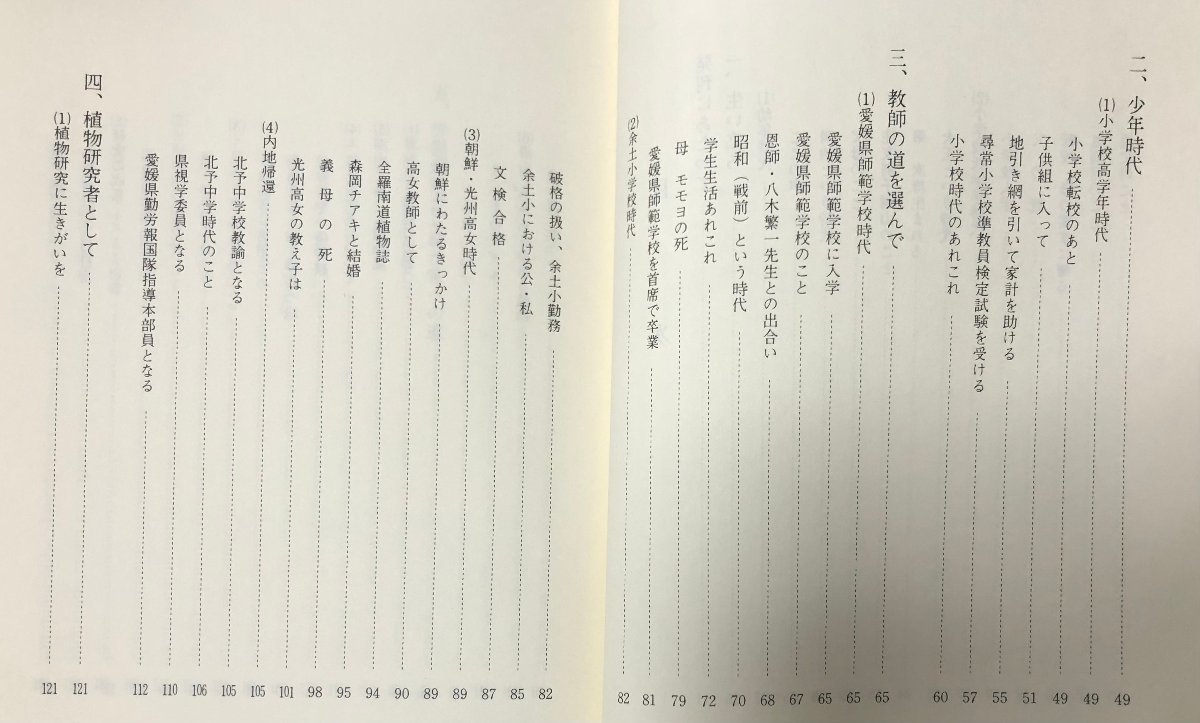 二、少年時代 49
(1)小学校高学年時代 49
小学校転校のあと 49
子供組に入って 51
地引き網を引いて家計を助ける 55
尋常小学校準教員検定試験を受ける 57
小学校時代のあれこれ 60
三、教師の道を選んで 65
(1)愛媛県師範学校時代 65
愛媛県師範学校に入学 65
愛媛県師範学校のこと 67
恩師・八木繁一先生との出合い 68
昭和（戦前）という時代 70
学生生活あれこれ 72
母 モモヨの死 79
愛媛県師範学校を首席で卒業 81
(2)余土小学校時代 82
破格の扱い、余土小勤務 82
余土小における公・私 85
文検合格 87
(3)朝鮮・光州高女時代 89
朝鮮にわたるきっかけ 89
高女教師として 90
全羅南道植物誌 94
森岡チアキと結婚 95
義母の死 98
光州高女の教え子は 101
(4)内地帰還 105
北予中学校教諭となる 105
北予中学時代のこと 106
県視学委員となる 110
愛媛県勤労報国隊指導本部員となる 112
四、植物研究者として 121
(1)植物研究に生きがいを 121